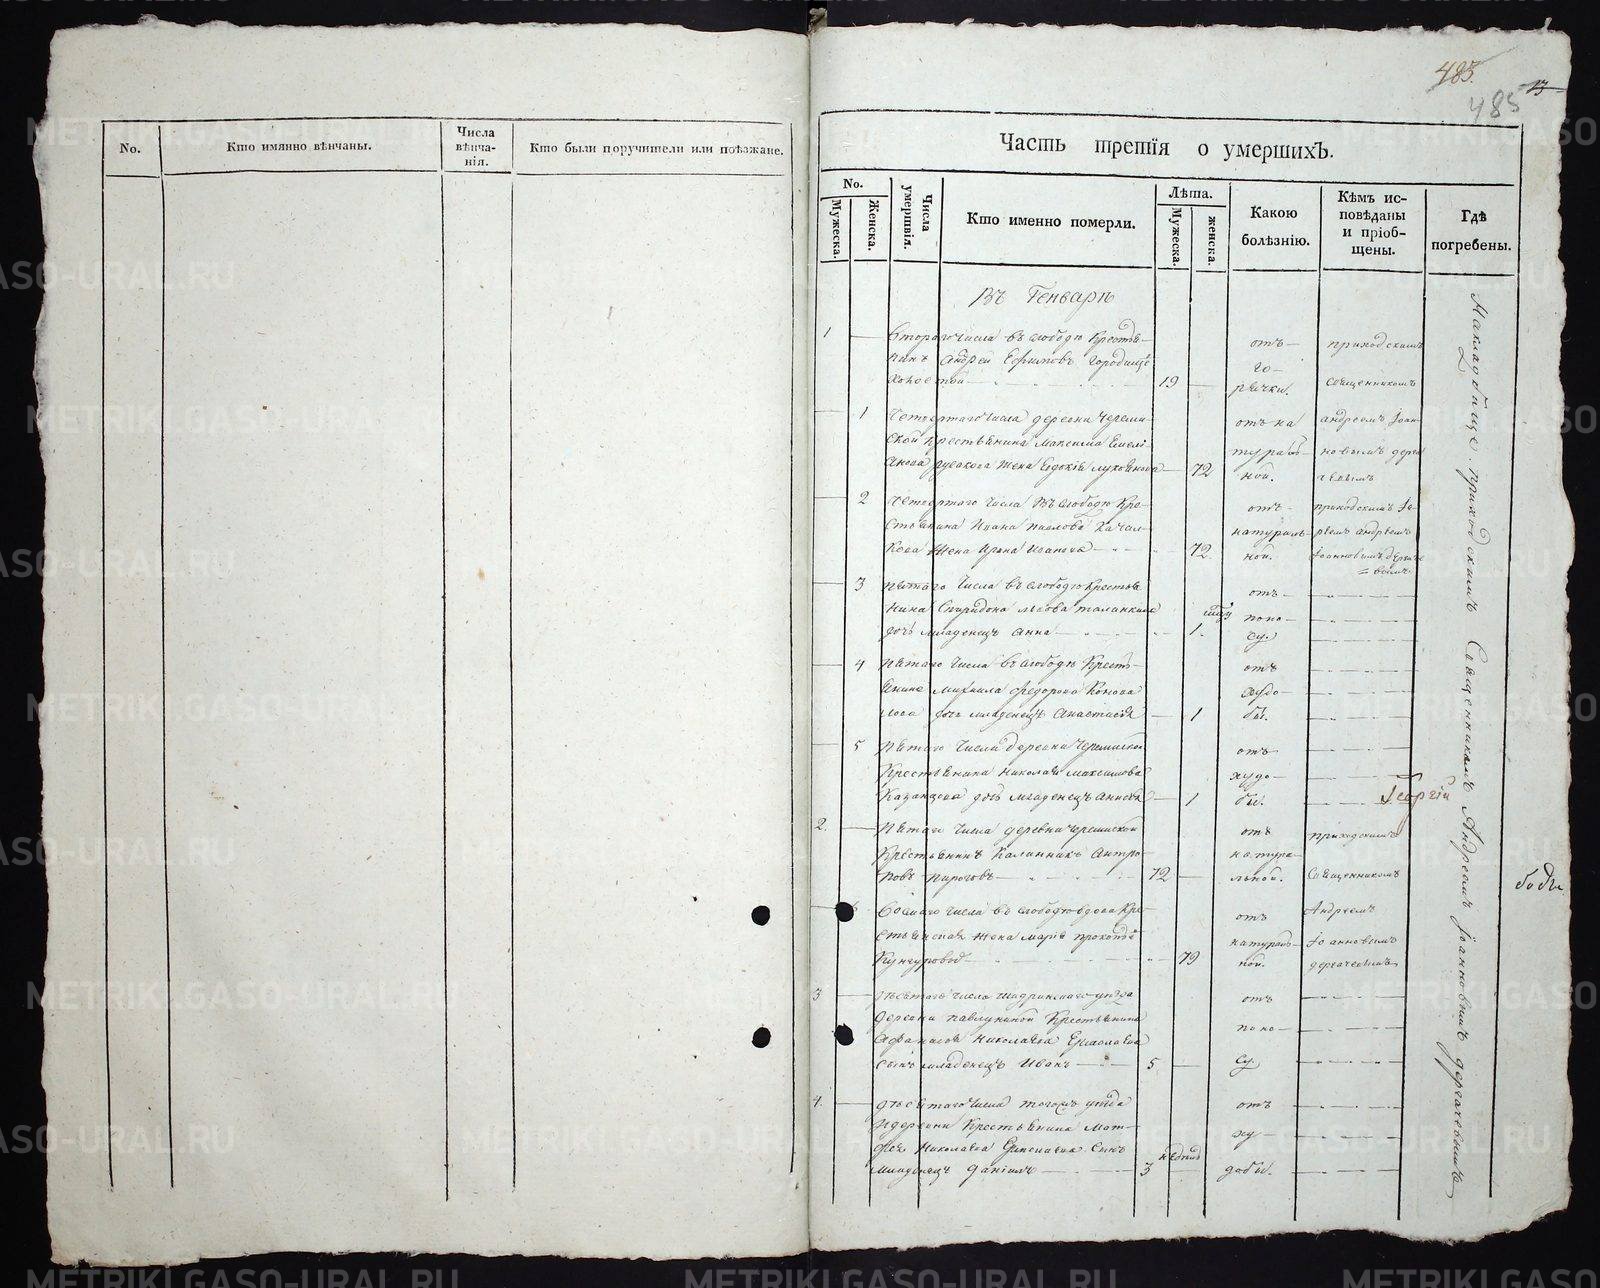 No.
Кто имянно вѣнчаны.
Числа вѣнча-
нія.
Кто были поручители или поѣзжане.
485.
485
13
Часть третія о умершихъ.
No.
Мужеска.
Женска.
Числа умертвія.
Кто именно померли.
Лѣта.
Мужеска.
женска.
Какою
болѣзнію.
Кѣмъ ис-
повѣданы
и пріоб-
щены.
Гдѣ
погребены.
Въ Генварѣ
1
Второго числа въ слободѣ Крестья-
нинъ Андрей Ефимовъ
холостой
19
отъ
го-
рячки.
приходскимъ
священникомъ
1
Четвертаго числа деревни Череми-
ской Крестьянина Максима Емель-
янова жена Евдокія
72
отъ на
тураль-
ной.
андреемъ Іоан-
новымъ дерга
чевымъ
2
Четвертаго числа въ слободѣ Кре-
стьянина Ивана Павлова Качал-
кова жена Ирина Иванова
72
отъ
натураль-
ной.
приходскимъ Іе-
реемъ андреемъ
Іоанновымъ дергаче
вымъ
3
Пятаго числа въ слободѣ Крестья
нина Спиридона
дочь младенецъ Анна
1.
отъ
поно-
су.
4
Пятаго числа въ слободѣ Кресть-
янина Михаила Федорова Конова
лова дочь младенецъ Анастасія
1
отъ
худо-
бы.
5
Пятаго числа деревни Черемиской
Крестьянина Николая Максимова
Казанцова дочь младенецъ
1
отъ
худо-
бы.
Георгій
2.
Пятаго числа деревни Черемиской
Крестьянинъ Калинникъ Антро-
повъ Пироговъ
72
отъ
натура-
льной.
приходскимъ
Священникомъ
6
Восмаго числа въ слободѣ вдова Кре-
стьянская жена Марія Прокопье
79
отъ
натураль-
ной.
Андреемъ
Іоанновымъ
дергачевымъ
3
Десятаго числа Шадринскаго уѣзда
деревни Крестьянина
Афанасія Николаева Ермолаева
сынъ младенецъ Иванъ
5
отъ
поно-
су
4.
Десятаго числа тогожъ уѣзда
и деревни Крестьянина Мат-
фея Николаева сынъ
младенецъ Даніилъ
3
отъ
ху-
добы.
На кладбище приходскимъ Священникомъ Андреемъ Іоанновымъ дергачевымъ